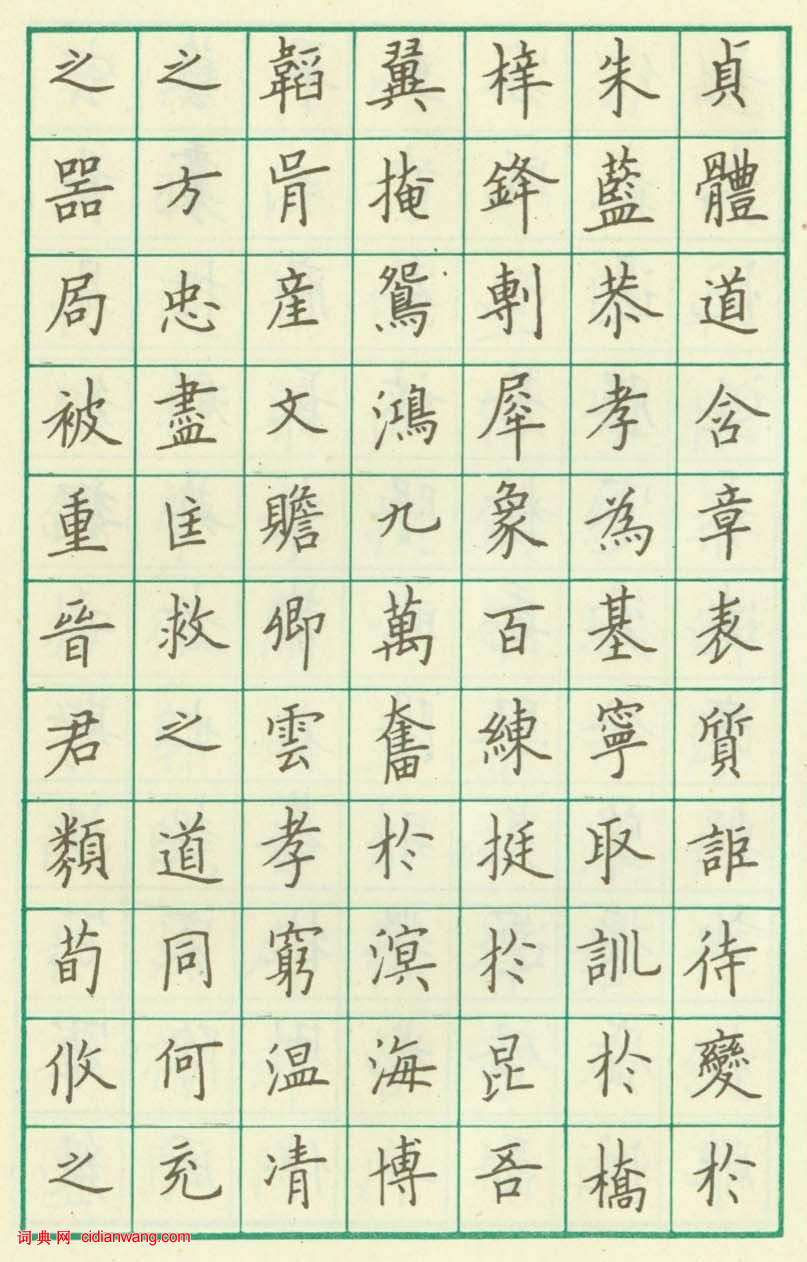 貞體道含章表質詎待變於
朱藍恭孝為基寧取訓於橋
梓鋒剸犀象百練挺於昆吾
翼掩鴛鴻九萬奮於溟海博
韜胄産文贍卿雲孝窮温凊
之方忠盡匡救之道同何充
之器局被重晉君類荀攸之
词典网 cidianwang.com